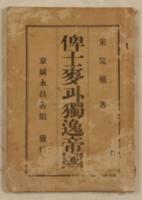 宋完植 著
俾士麥과獨逸帝國
京城永昌書館 發行